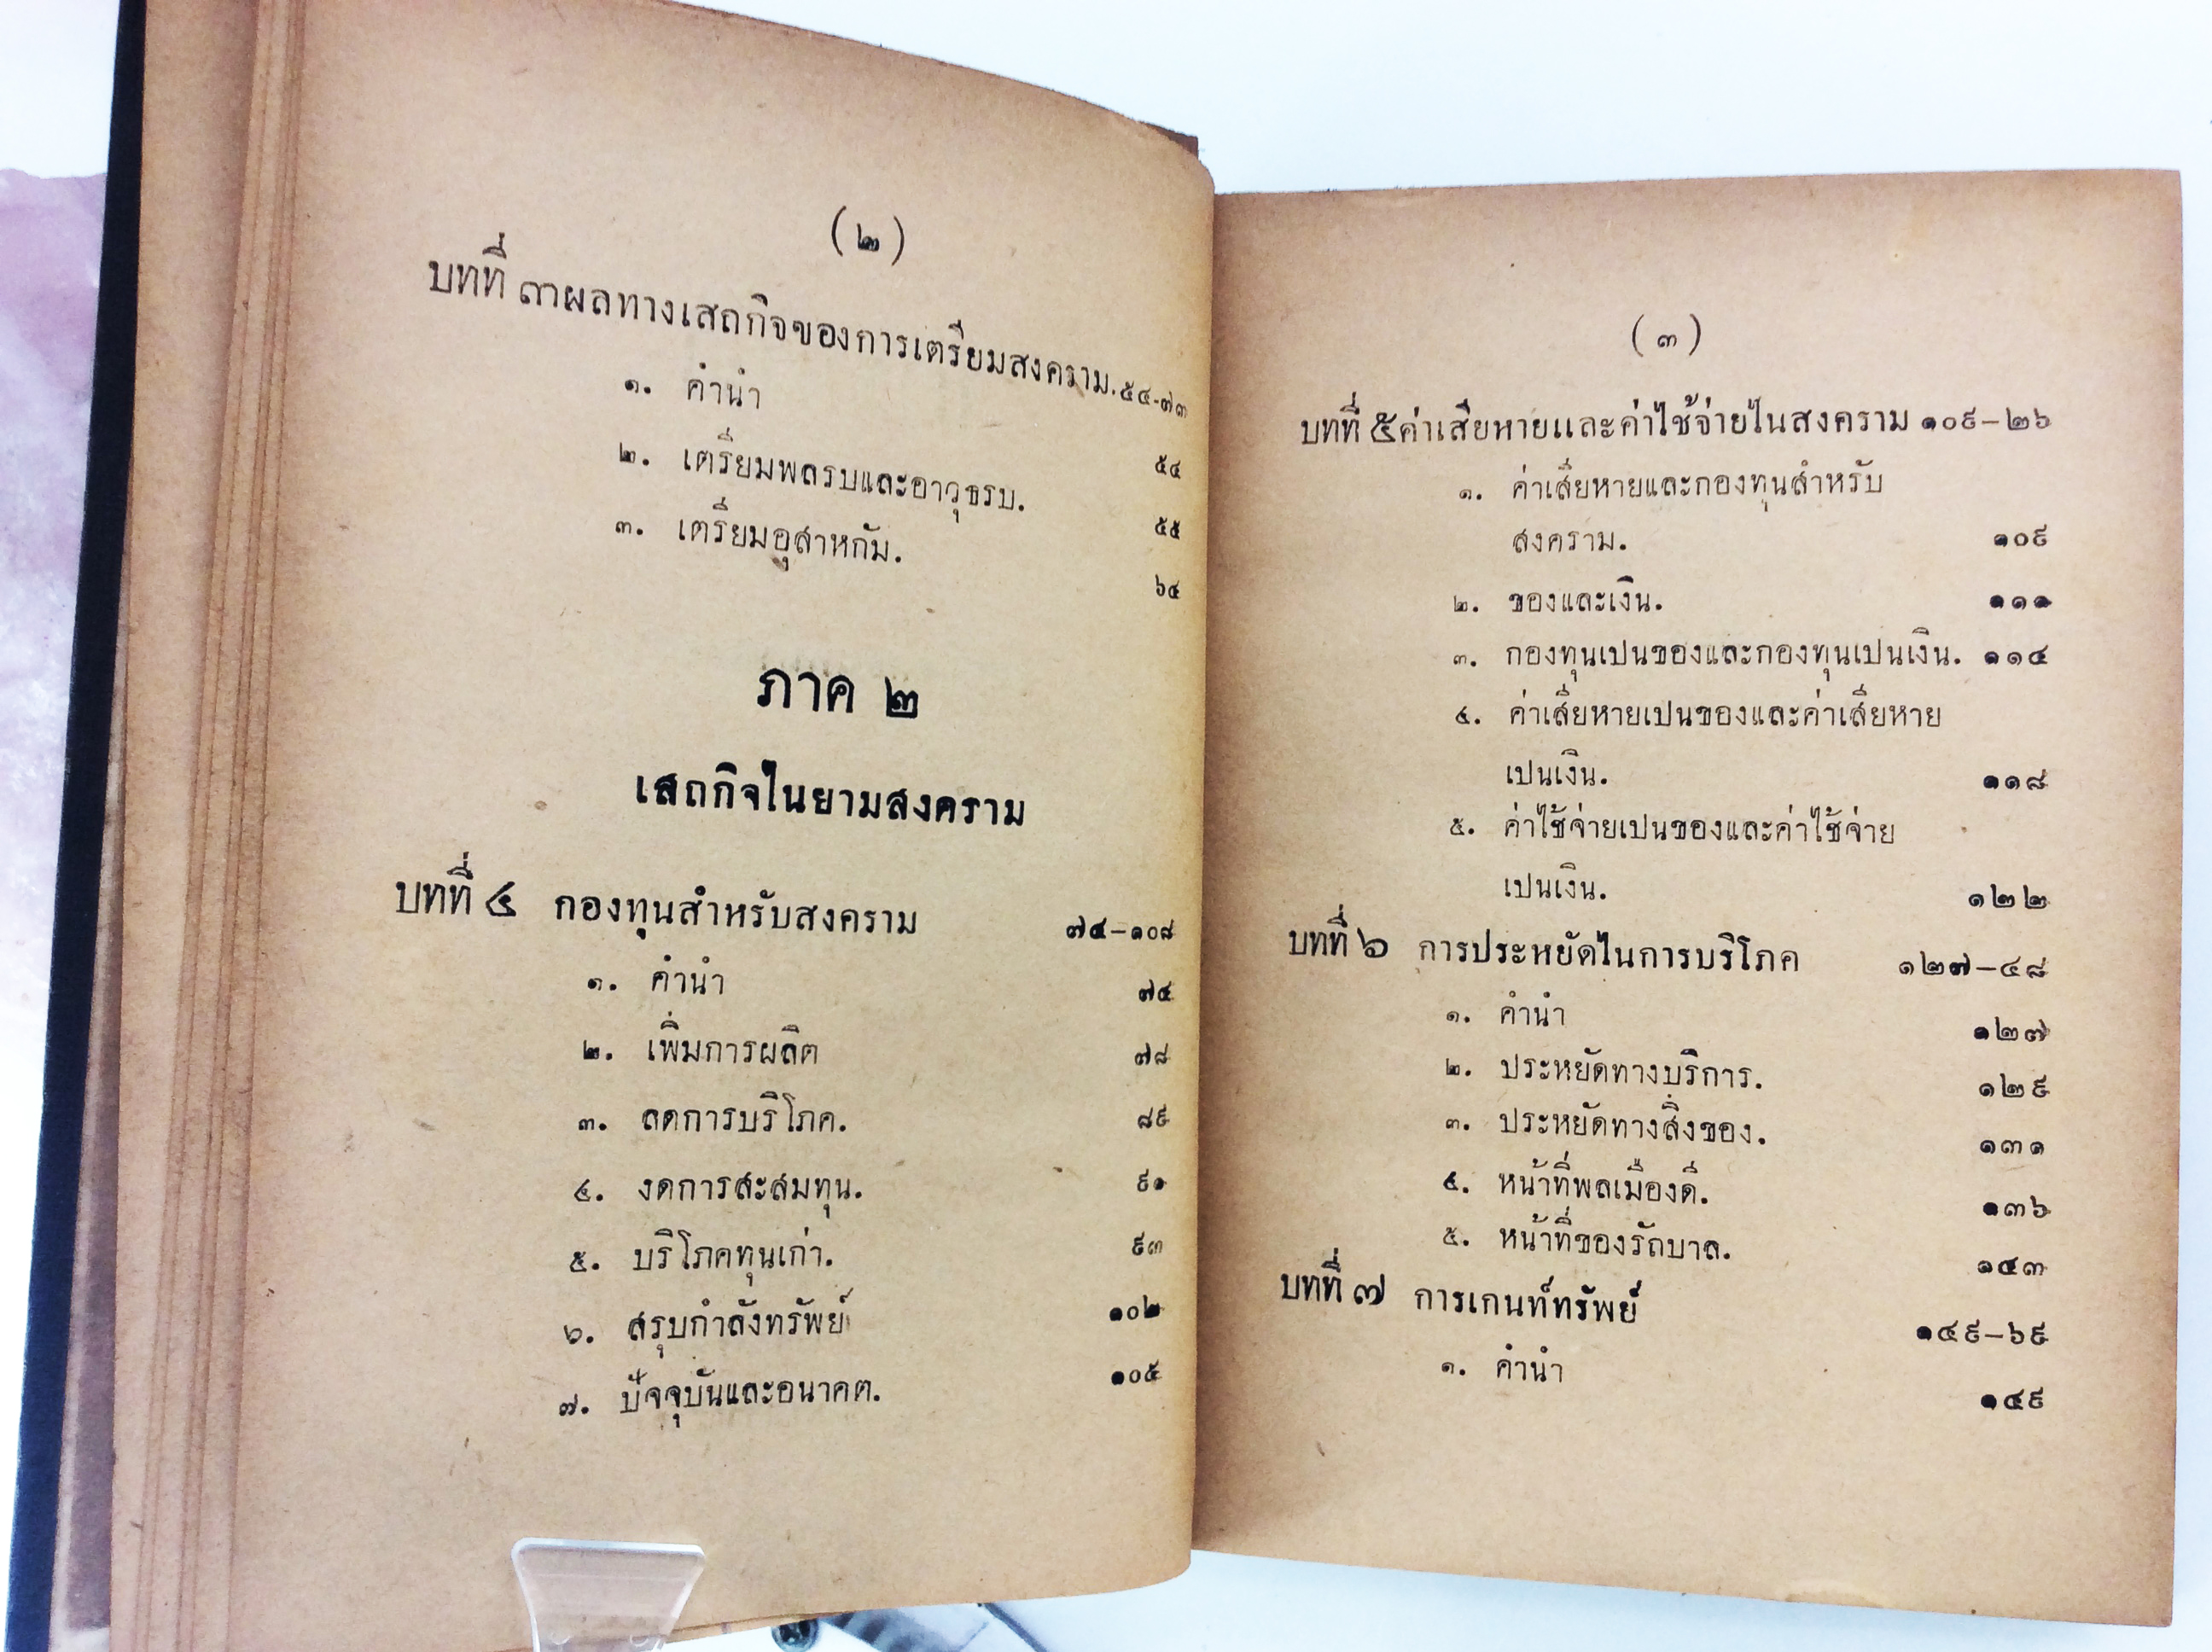 (๒)
บทที่ ๓ ผลทางเสถกิจของการเตรียมสงคราม. ๕๔-๗๓
๑. คำนำ ๕๔
๒. เตรียมพลรบและอาวุธรบ. ๕๕
๓. เตรียมอุสาหกัม. ๖๔
ภาค ๒
เสถกิจในยามสงคราม
บทที่ ๔ กองทุนสำหรับสงคราม ๗๔-๑๐๘
๑. คำนำ ๗๔
๒. เพิ่มการผลิต ๗๘
๓. ลดการบริโภค. ๘๙
๔. งดการสะสมทุน. ๙๑
๕. บริโภคทุนเก่า. ๙๓
๖. สรุบกำลังทรัพย์ ๑๐๒
๗. ปัจจุบันและอนาคต. ๑๐๕
(๓)
บทที่ ๕ ค่าเสียหายและค่าใช้จ่ายในสงคราม ๑๐๙-๒๖
๑. ค่าเสียหายและกองทุนสำหรับ
สงคราม. ๑๐๙
๒. ของและเงิน. ๑๑๑
๓. กองทุนเปนของและกองทุนเปนเงิน. ๑๑๔
๔. ค่าเสียหายเปนของและค่าเสียหาย
เปนเงิน. ๑๑๘
๕. ค่าใช้จ่ายเปนของและค่าใช้จ่าย
เปนเงิน. ๑๒๒
บทที่ ๖ การประหยัดในการบริโภค ๑๒๗-๔๘
๑. คำนำ ๑๒๗
๒. ประหยัดทางบริการ. ๑๒๙
๓. ประหยัดทางสิ่งของ. ๑๓๑
๔. หน้าที่พลเมืองดี. ๑๓๖
๕. หน้าที่ของรัถบาล. ๑๔๓
บทที่ ๗ การเกนท์ทรัพย์ ๑๔๙-๖๙
๑. คำนำ ๑๔๙